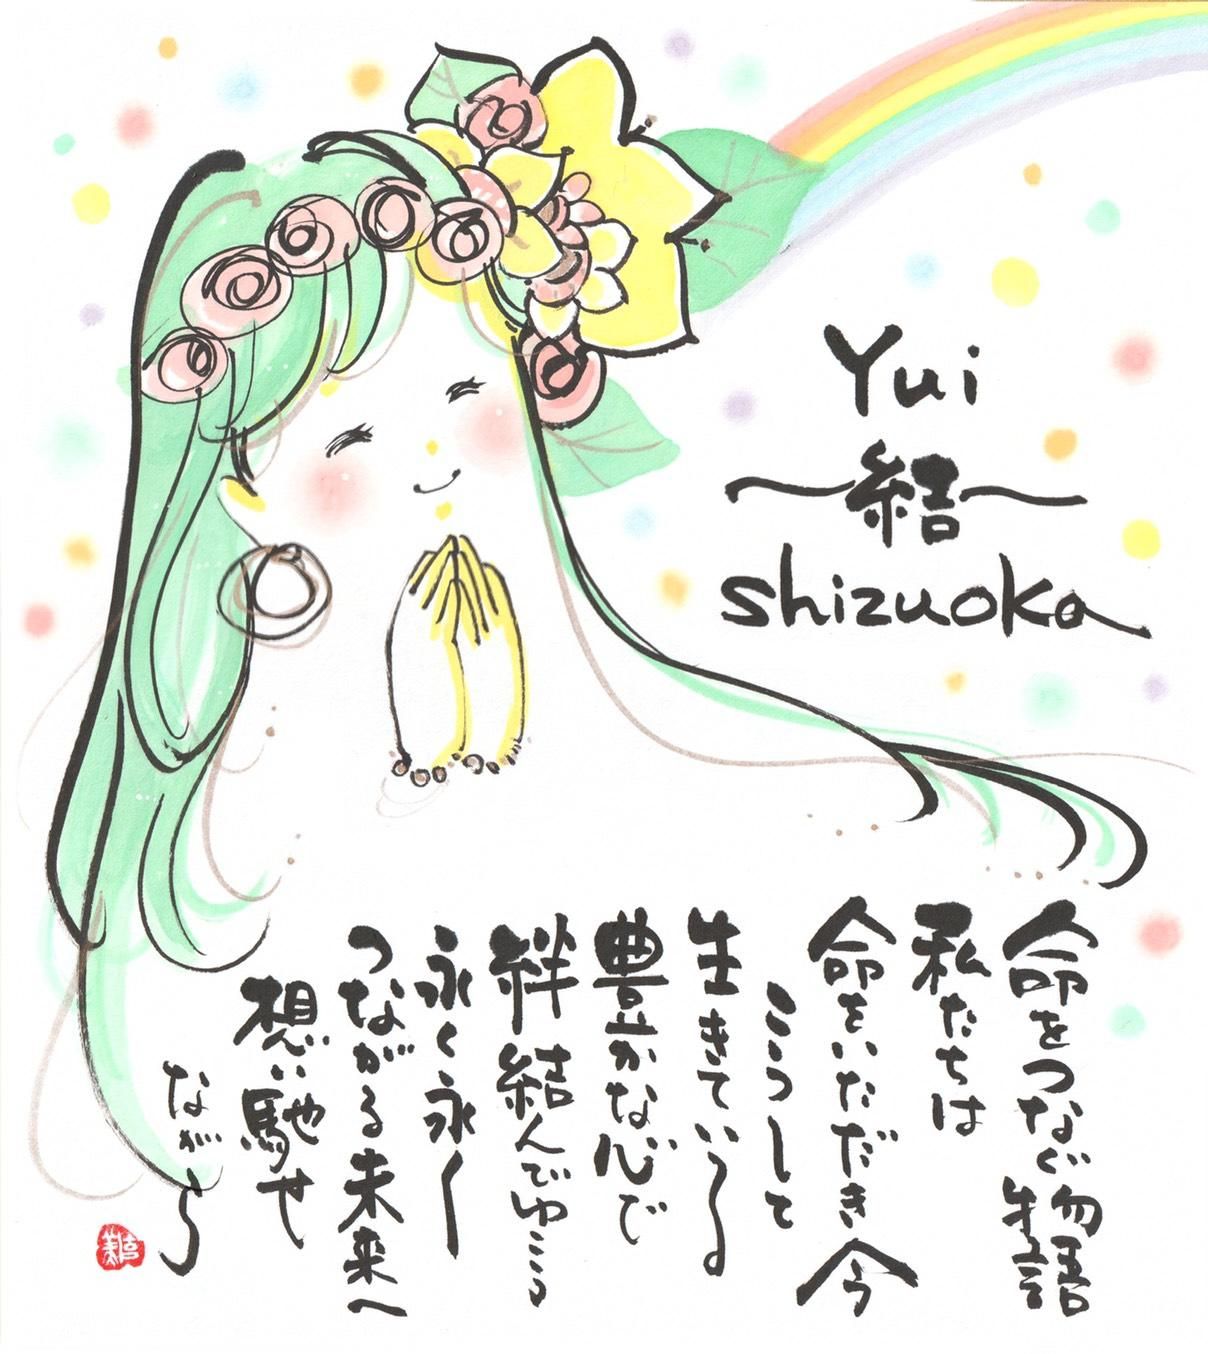 Yui
～結～
shizuoka
命をつなぐ物語
私たちは
命をいただき今
こうして
生きている
豊かな心で
絆結んでゆこう
永く永く
つながる未来へ
想い馳せ
ながら